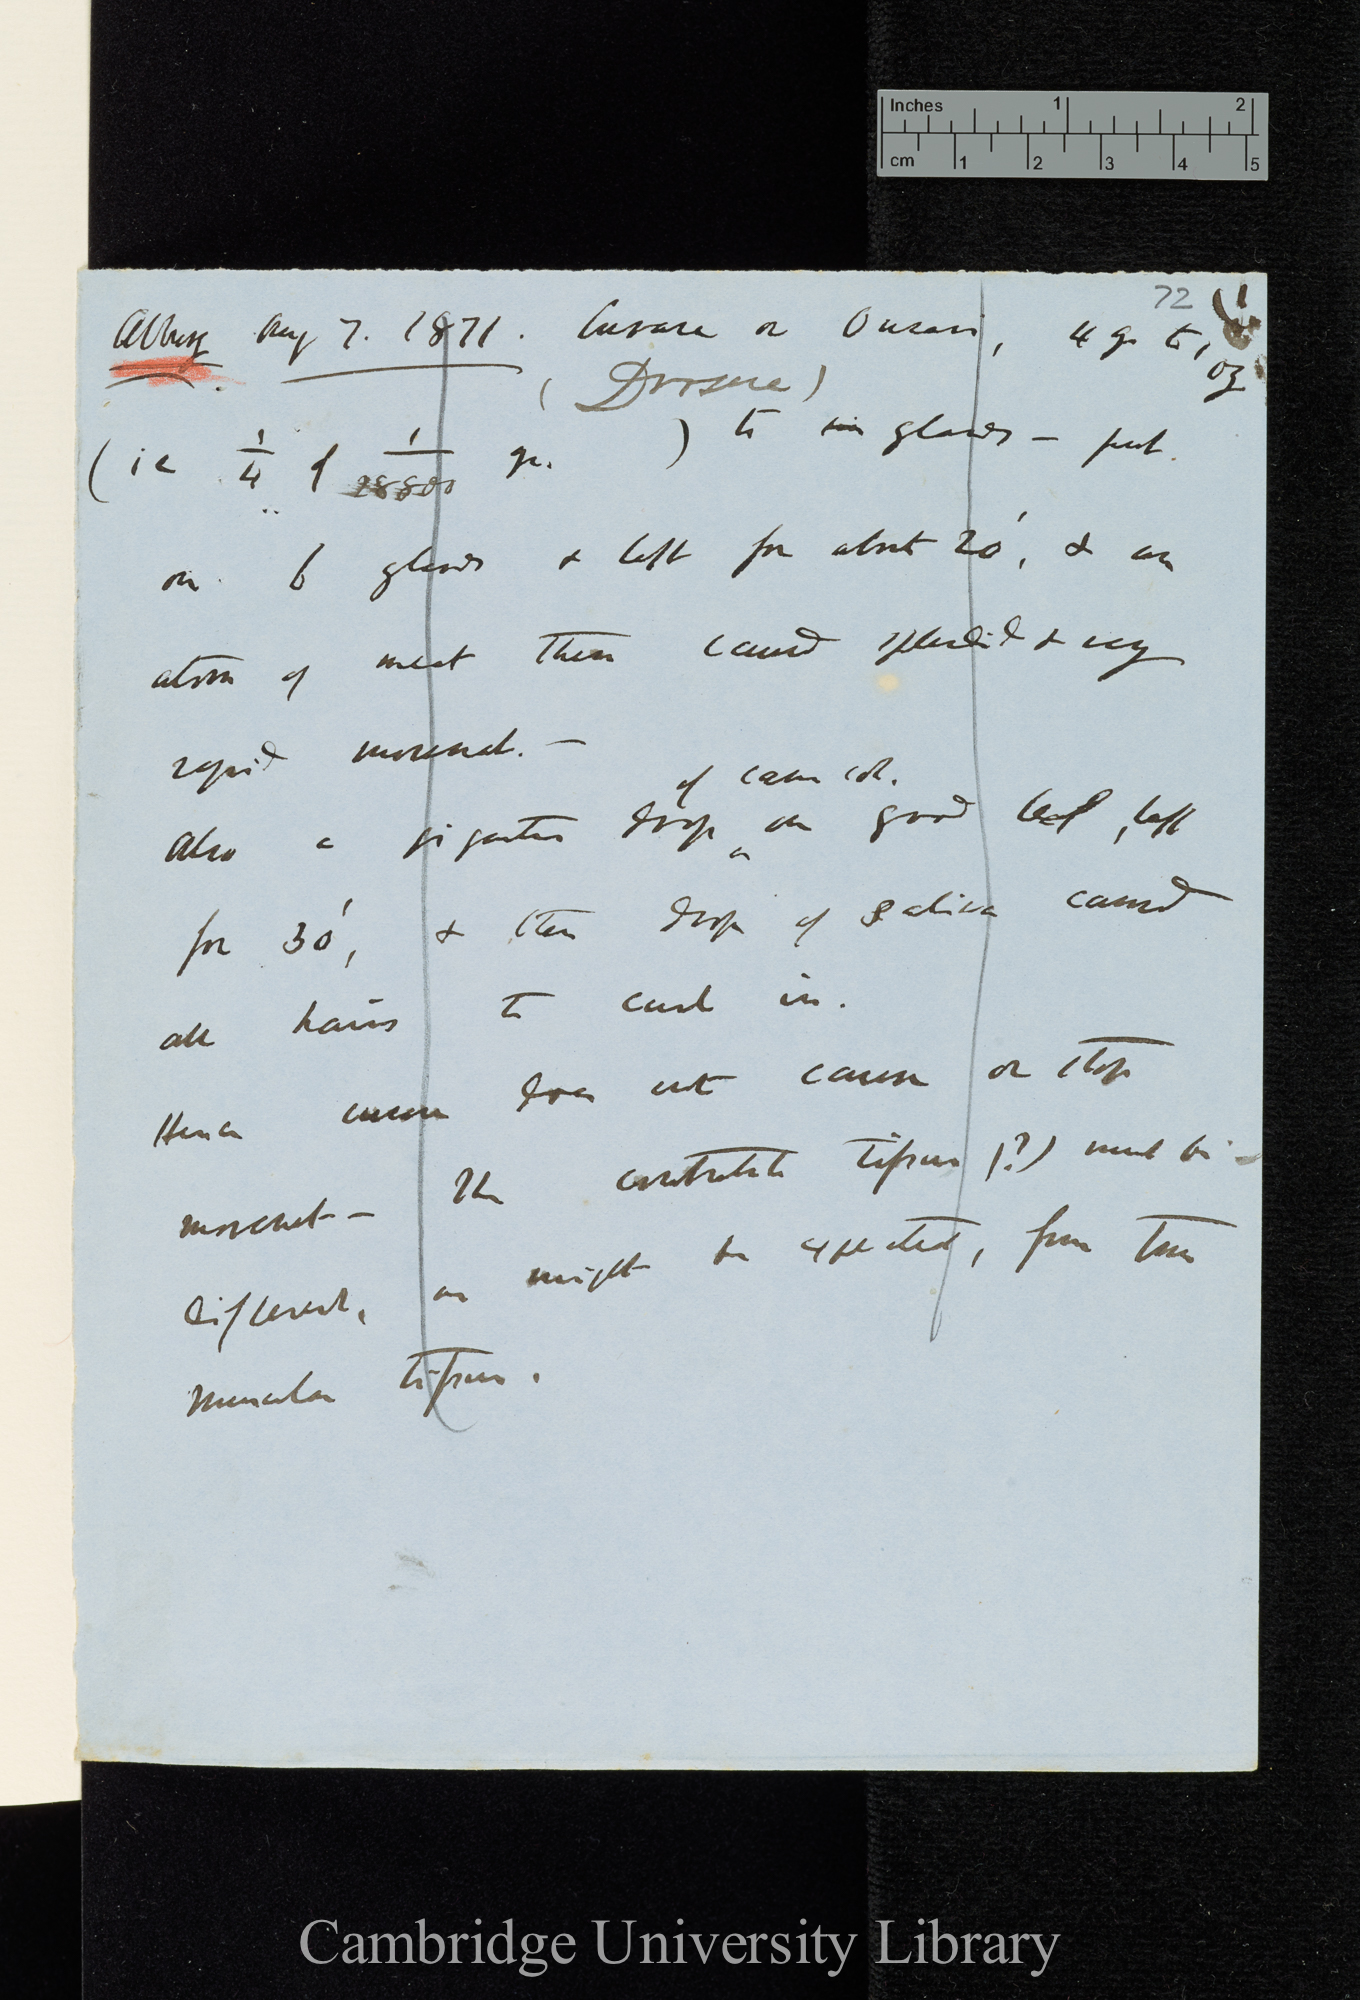 Inches 1 2
cm 1 2 3 4 5
72
Albury Aug 7. 1871. Curare or Ourari, 4 gr to 1 oz
(Drosera)
(ie 1/4 of 1/28800 gr. ) to six glands — put
on 6 glands & left for about 20', & an
atom of meat then caused splendid & very
rapid movement. —
of same sol.
Also a gigantic drop on good leaf, left
for 30', & then drop of saliva caused
all hairs to curl in.
Hence curare does not cause or stop
movement — The contractile tissue (?) must be
different, as might be expected, from true
muscular tissue.
Cambridge University Library